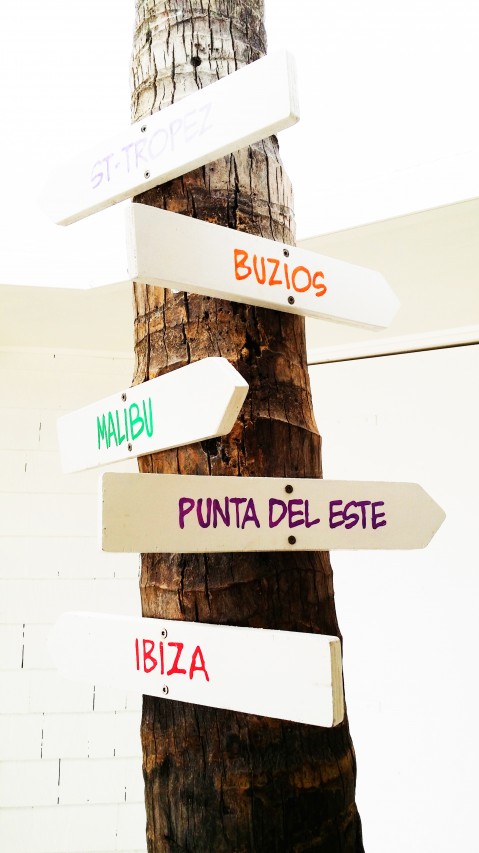 ST-TROPEZ
BUZIOS
MALIBU
PUNTA DEL ESTE
IBIZA